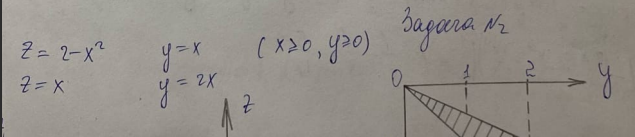 Задача №2
z = 2-x² y = x (x≥0, y≥0)
z = x y = 2x
z
0 1 2 y